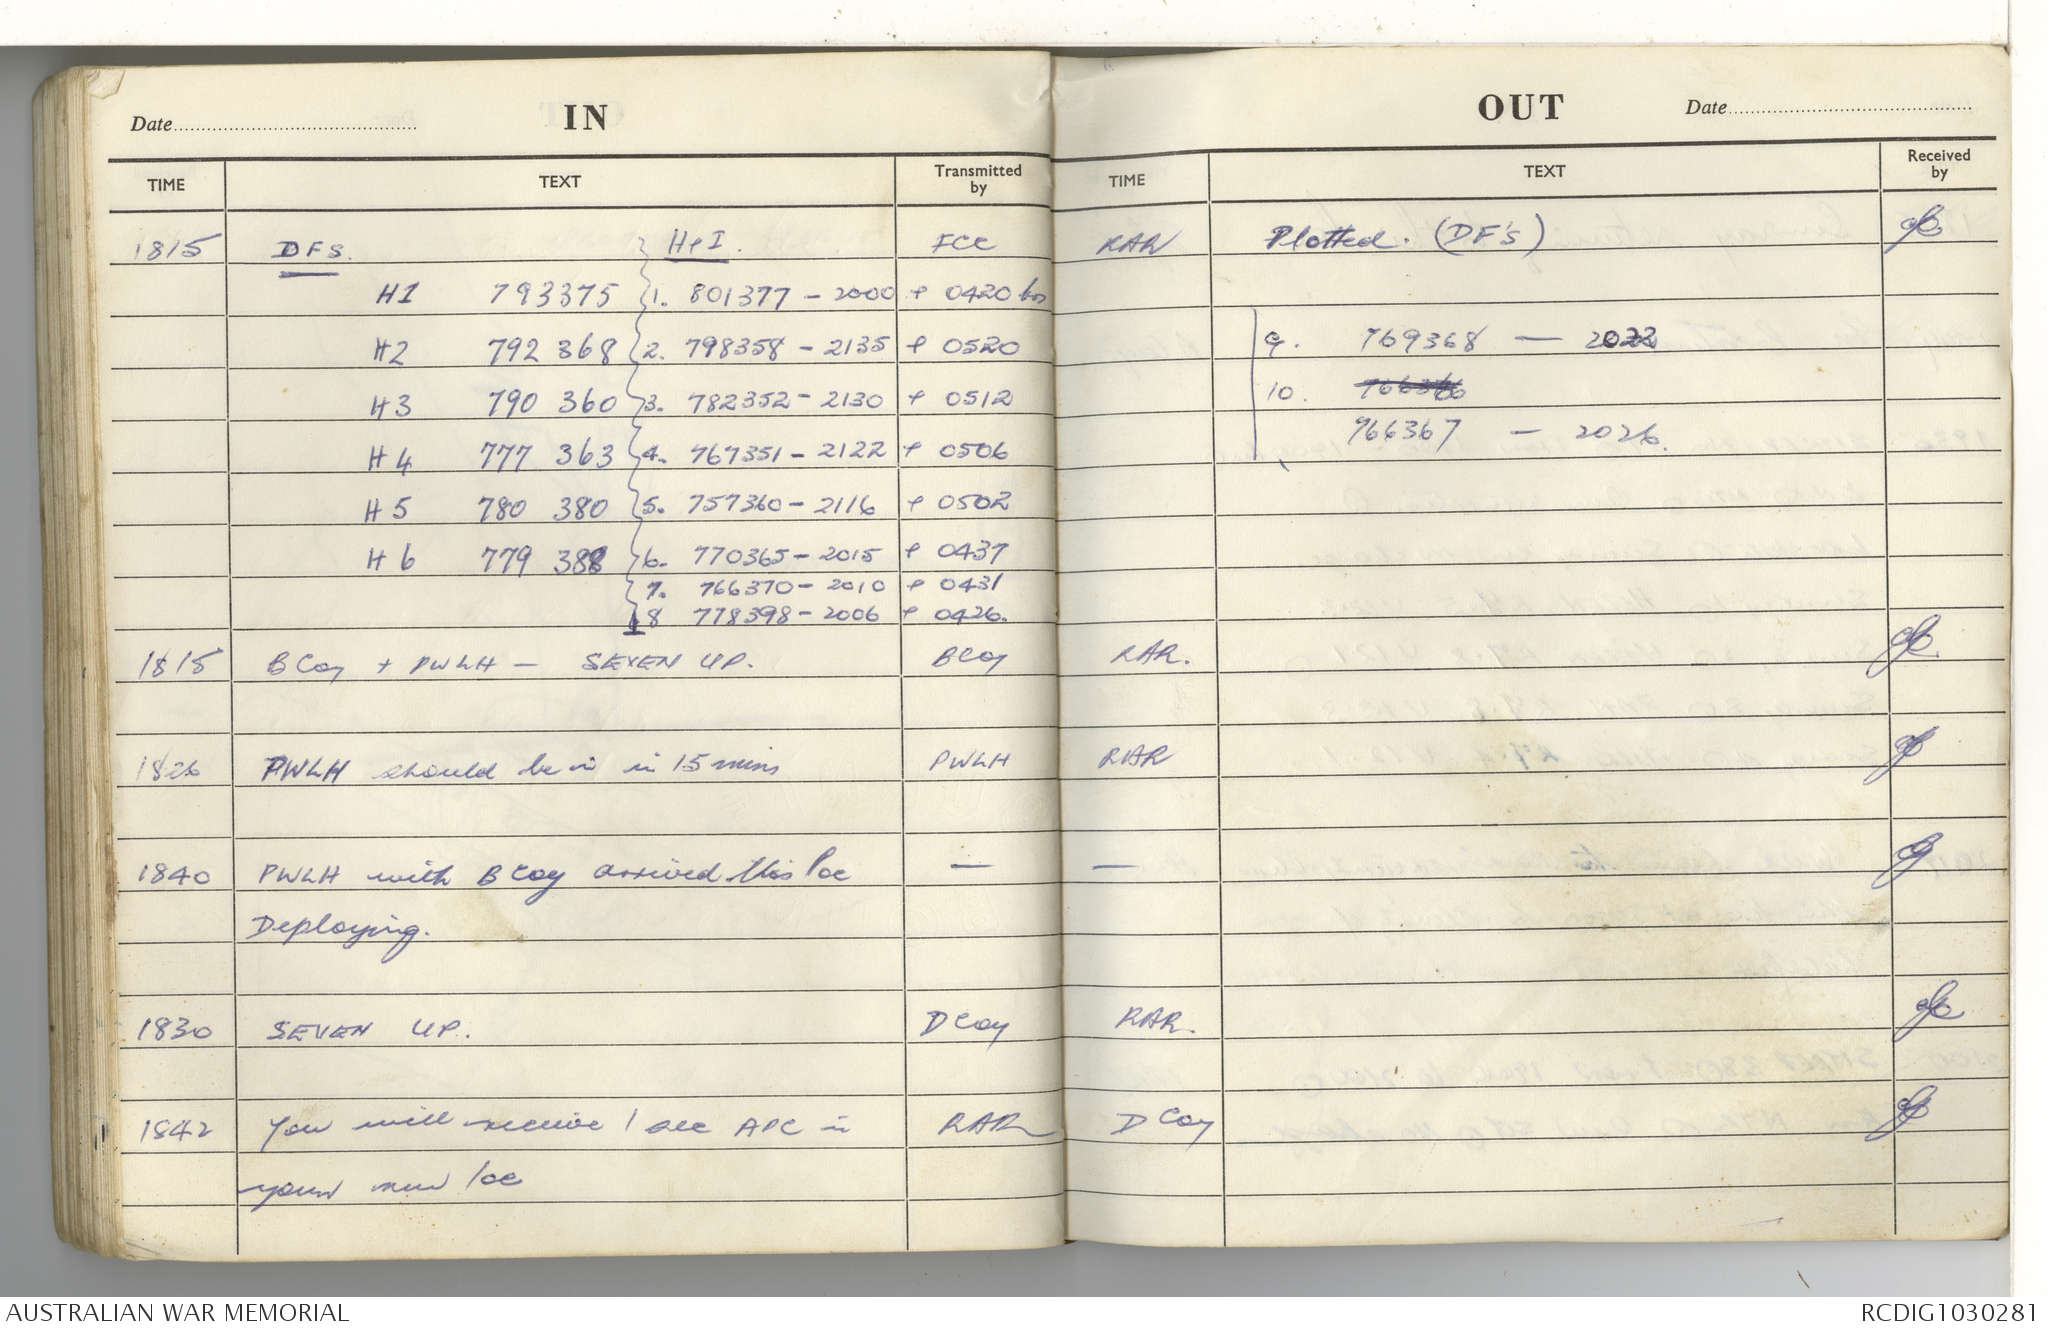 IN
Date
TIME TEXT Transmitted by
1815 DFS. H+I. FCC
H1 793375 1. 801377 - 2000 + 0420 hrs
H2 792 368 2. 798358 - 2135 + 0520
H3 790 360 3. 782352 - 2130 + 0512
H4 777 363 4. 767351 - 2122 + 0506
H5 780 380 5. 757360 - 2116 + 0502
H6 779 388 6. 770365 - 2015 + 0437
7. 766370 - 2010 + 0431
8 778398 - 2006 + 0426.
1815 B Coy + PWLH - SEVEN UP. B Coy
1826 PWLH should be in in 15 mins PWLH
1840 PWLH with B Coy arrived this loc —
Deploying.
1830 SEVEN UP. D Coy
1842 You will receive 1 sec APC in RAR
your new loc
OUT
Date
TIME TEXT Received by
RAR Plotted. (DF's)
9. 769368 — 2022
10. 766366
766367 - 2026.
RAR.
RAR
—
RAR.
D Coy
AUSTRALIAN WAR MEMORIAL
RCDIG1030281